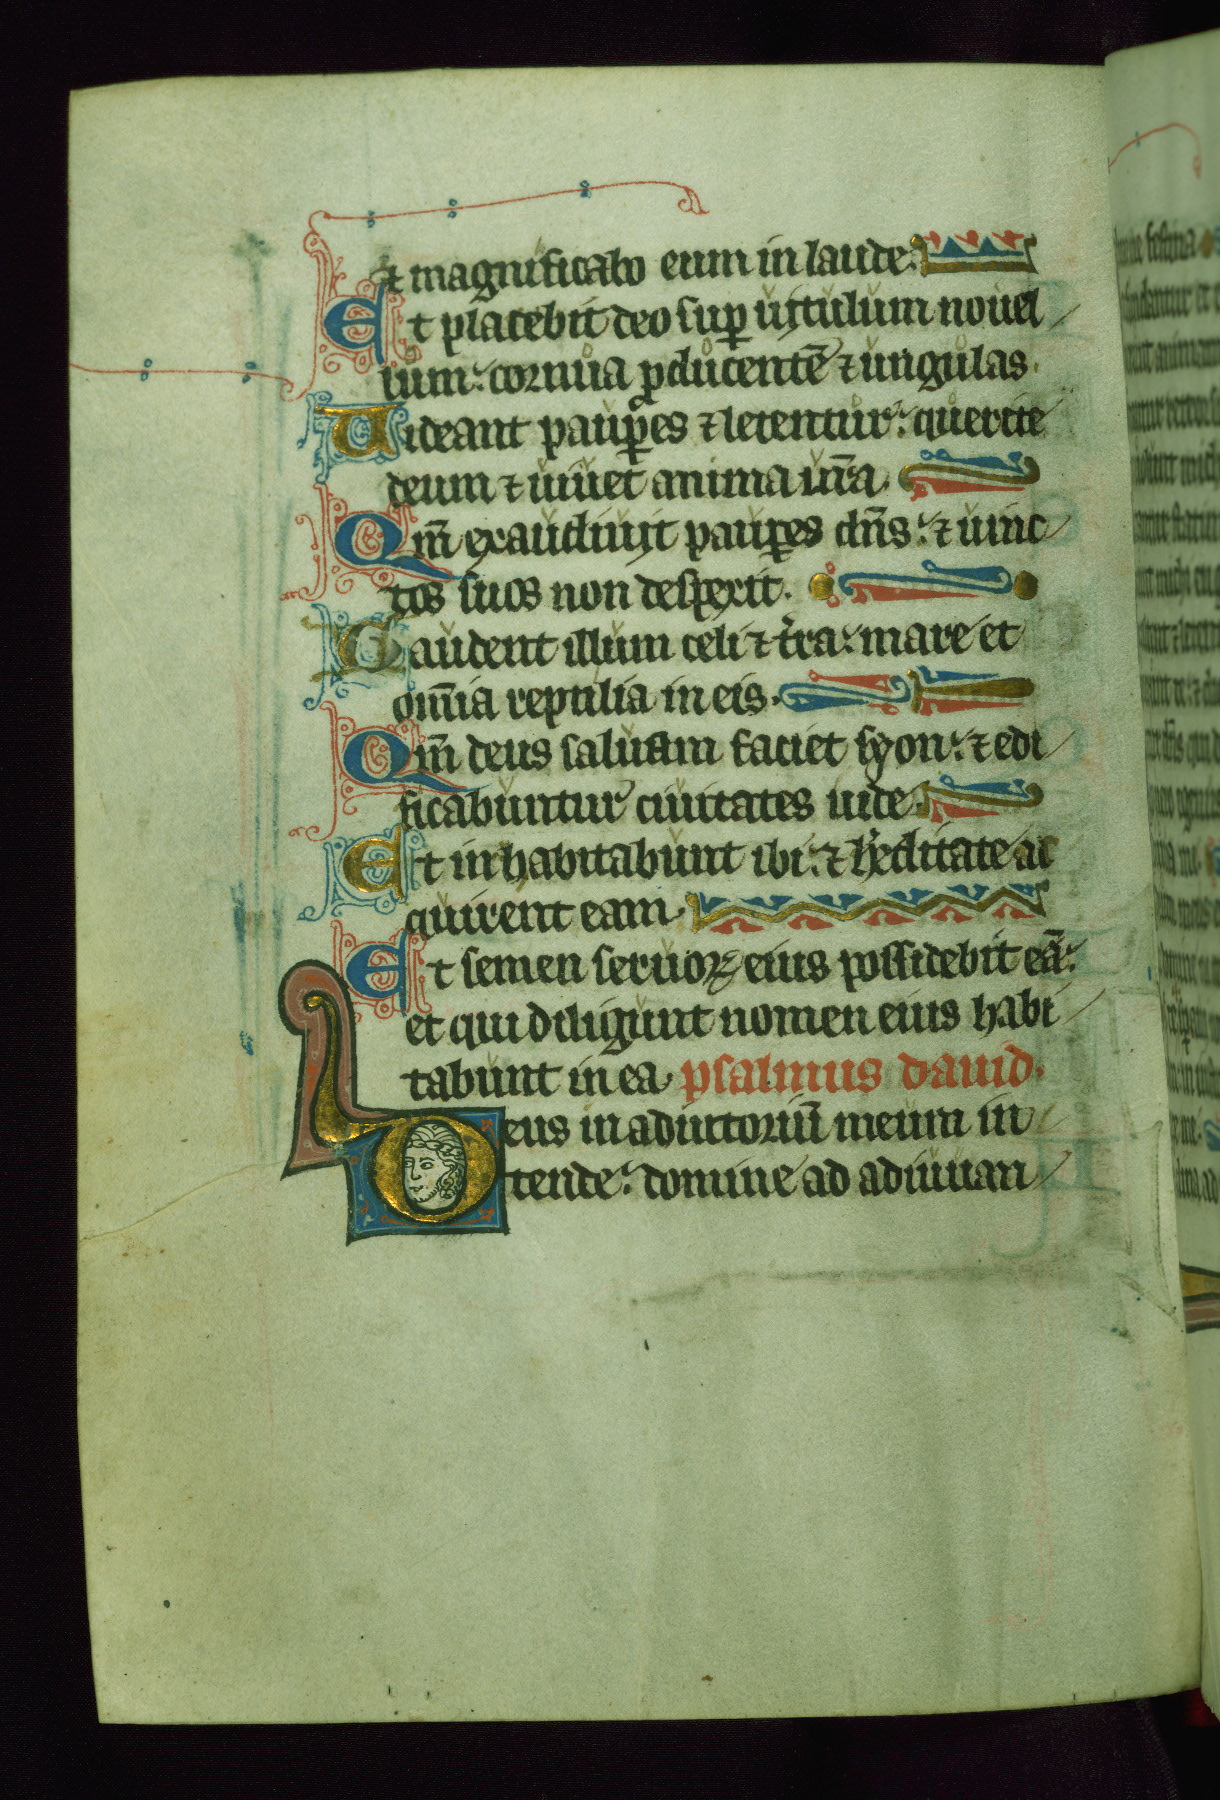 ⁊ magnificabo eum in laude.
Et placebit deo sup̱ uitulum nouel
lum: cornua ꝓducentē ⁊ ungulas.
Uideant paup̱es ⁊ letentur: querite
deum ⁊ uiuet anima ur̄a.
Qm̄ exaudiuit paup̱es dn̄s: ⁊ uinc
tos suos non desp̱exit.
Laudent illum celi ⁊ t̓ra: mare et
om̄ia reptilia in eis.
Qm̄ deus saluam faciet syon: ⁊ edi
ficabuntur ciuitates iude.
Et inhabitabunt ibi: ⁊ h̓editate ac
quirent eam.
Et semen seruoꝝ eius possidebit eā:
et qui diligunt nomen eius habi
tabunt in ea psalmus dauid.
Deus in adiutoriū meum in
tende: domine ad adiuuan